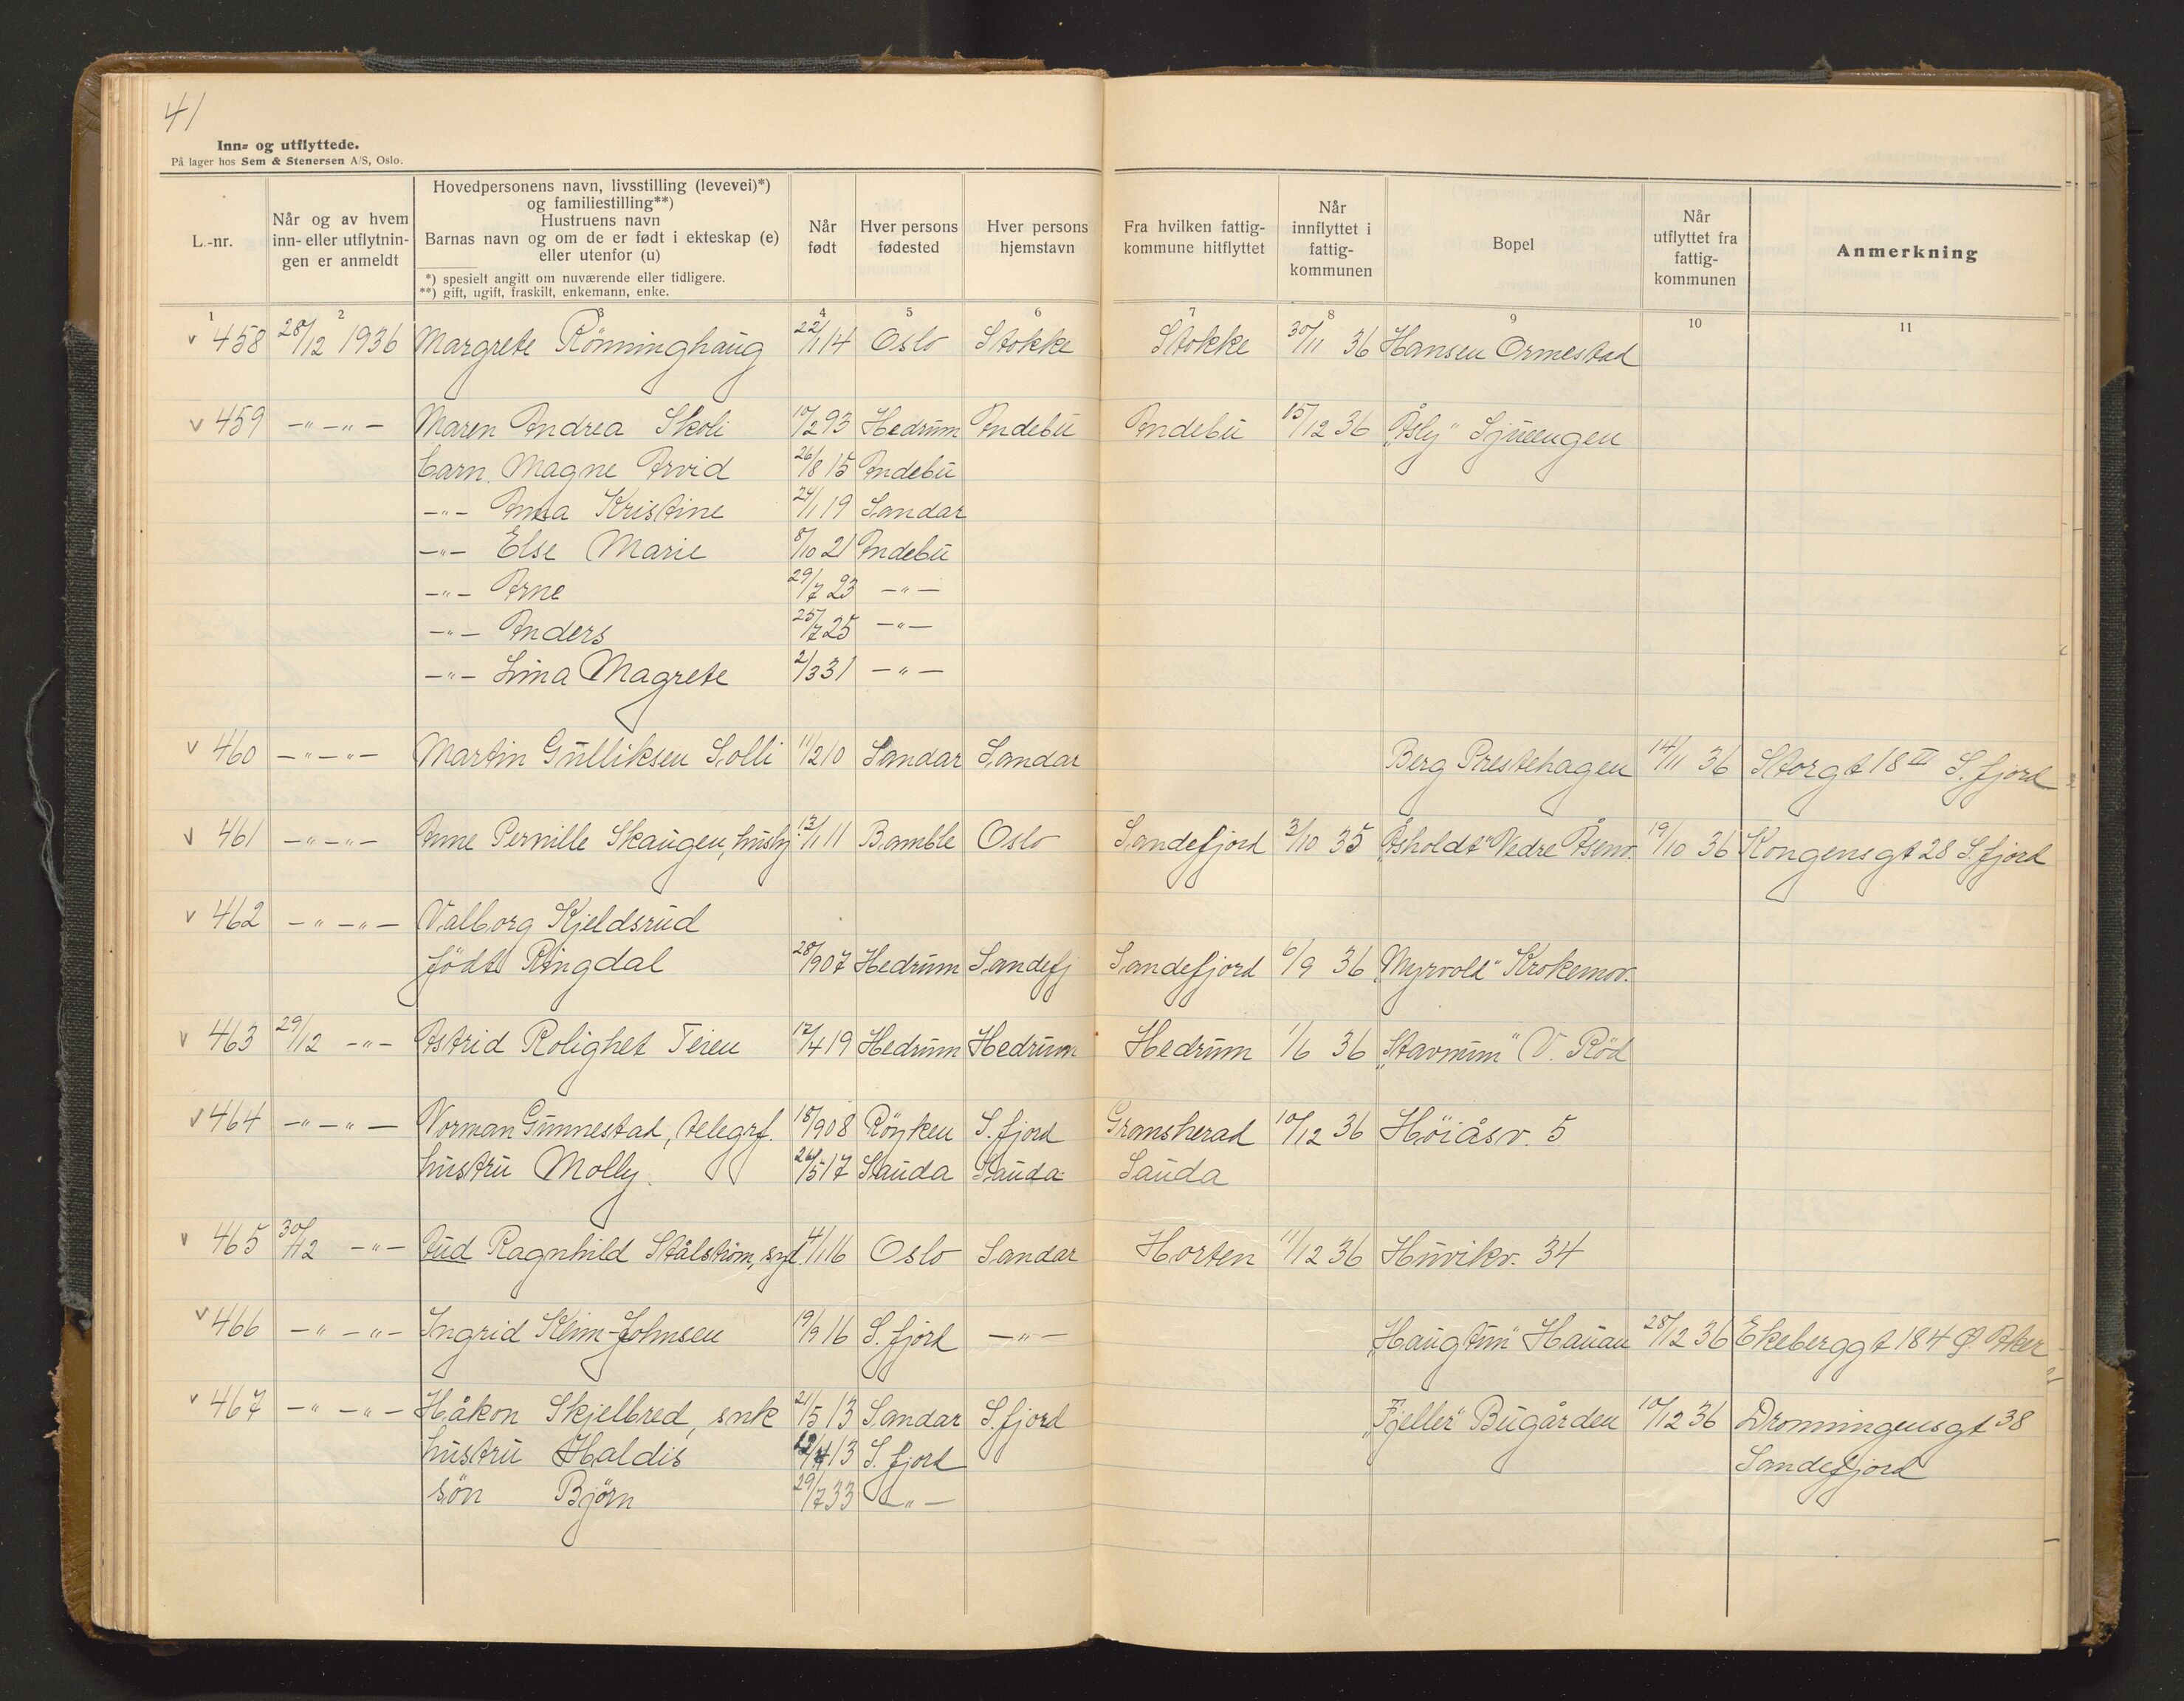 41
Inn- og utflyttede.
På lager hos Sem & Stenersen A/S, Oslo.
L.-nr.
Når og av hvem inn- eller utflytnin-gen er anmeldt
Hovedpersonens navn, livsstilling (levevei)*)
og familiestilling**)
Hustruens navn
Barnas navn og om de er født i ekteskap (e)
eller utenfor (u)
*) spesielt angitt om nuværende eller tidligere.
**) gift, ugift, fraskilt, enkemann, enke.
Når født
Hver persons fødested
Hver persons hjemstavn
Fra hvilken fattig-kommune hitflyttet
Når innflyttet i fattig-kommunen
Bopel
Når utflyttet fra fattig-kommunen
Anmerkning
1 2 3 4 5 6 7 8 9 10 11
v 458 28/12 1936 Margrete Rönninghaug 22/1 14 Oslo Stokke Stokke 30/11 36 Hansen Ormestad
v 459 -"-"- Maren Andrea Skoli 10/2 93 Hedrum Andebu Andebu 15/12 36 "Åsly" Sjuengen
barn Magne Arvid 26/8 15 Andebu
-"- Anna Kristine 24/1 19 Sandar
-"- Else Marie 8/10 21 Andebu
-"- Arne 29/7 23 -"-
-"- Anders 25/7 25 -"-
-"- Lina Magrete 2/3 31 -"-
v 460 -"-"- Martin Gulliksen Solli 11/2 10 Sandar Sandar Berg Prestehagen 14/11 36 Storgt 18 III S.fjord
v 461 -"-"- Anne Pernille Skaugen, hushj. 12/1 11 Bamble Oslo Sandefjord 3/10 35 "Åsholdt" Nedre Åsenv. 19/10 36 Kongensgt 28 S.fjord
v 462 -"-"- Valborg Kjeldsrud
född Ringdal 28/9 07 Hedrum Sandefj Sandefjord 6/9 36 "Myrvold" Krokemov.
v 463 29/12 -"- Astrid Rolighet Teien 17/4 19 Hedrum Hedrum Hedrum 1/6 36 "Stavnum" V. Röd
v 464 -"-"- Norman Gunnestad, telegrf. 18/9 08 Röyken S.fjord Gransherad 10/12 36 Höiåsv. 5
hustru Molly. 26/5 17 Sauda Sauda Sauda
v 465 30/12 -"- Aud Ragnhild Stålström, syd. 4/1 16 Oslo Sandar Horten 11/12 36 Huvikv. 34
v 466 -"-"- Ingrid Klim-Johnsen 19/9 16 S.fjord -"- "Haugtun" Hauan 28/12 36 Ekeberggt 184 Ø. Aker
v 467 -"-"- Håkon Skjelbred, snk 21/5 13 Sandar S.fjord "Fjeller" Bugården 10/12 36 Dronningensgt 38
hustru Haldis 13 S.fjord Sandefjord
sön Björn 29/7 33 -"-